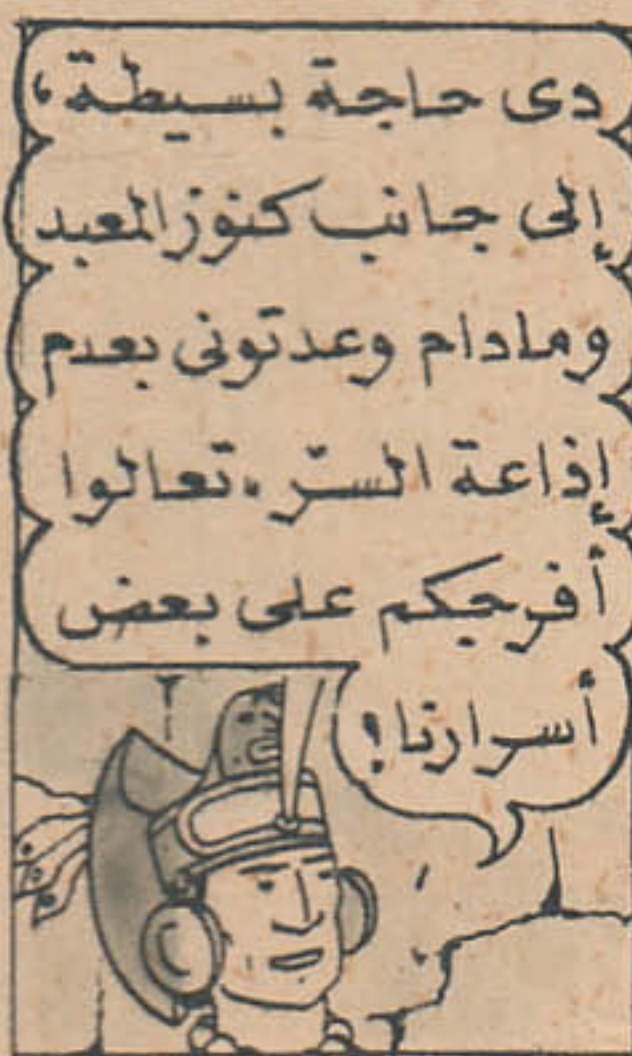 دى حاجة بسيطة،
إلى جانب كنوز المعبد
ومادام وعدتونى بعدم
إذاعة السّر. تعالوا
أفرجكم على بعض
أسرارنا!